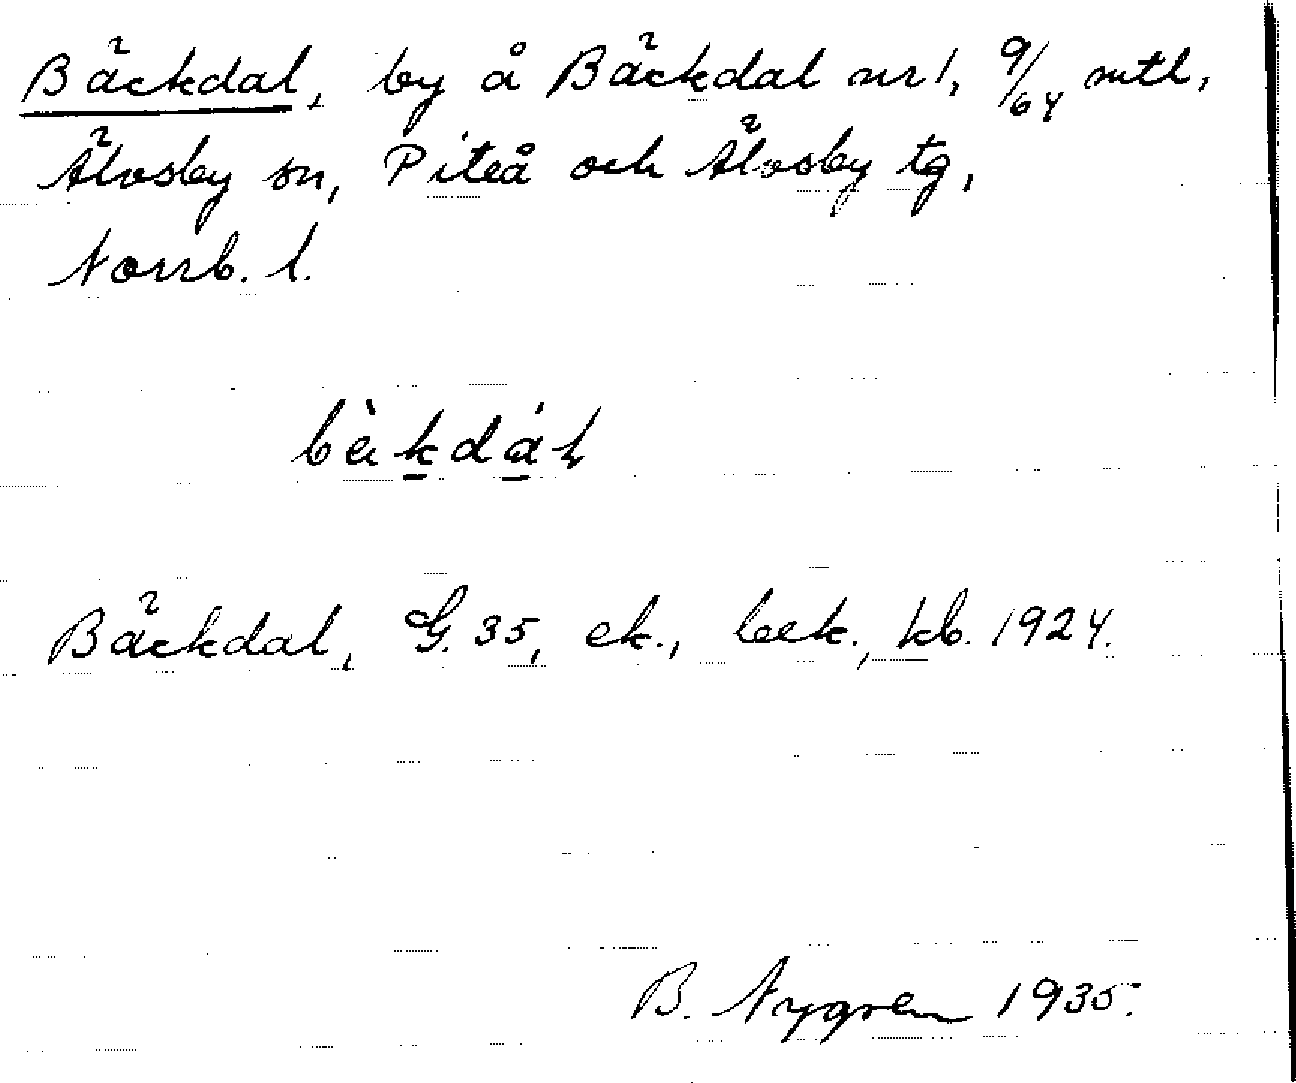 Bäckdal, by å Bäckdal nr 1, 9/64 mtl,
Älvsby sn, Piteå och Älvsby tg,
Norrb. l.
bèkdál
Bäckdal, G. 35, ek., bek., kb. 1924.
B. Nygren 1935.